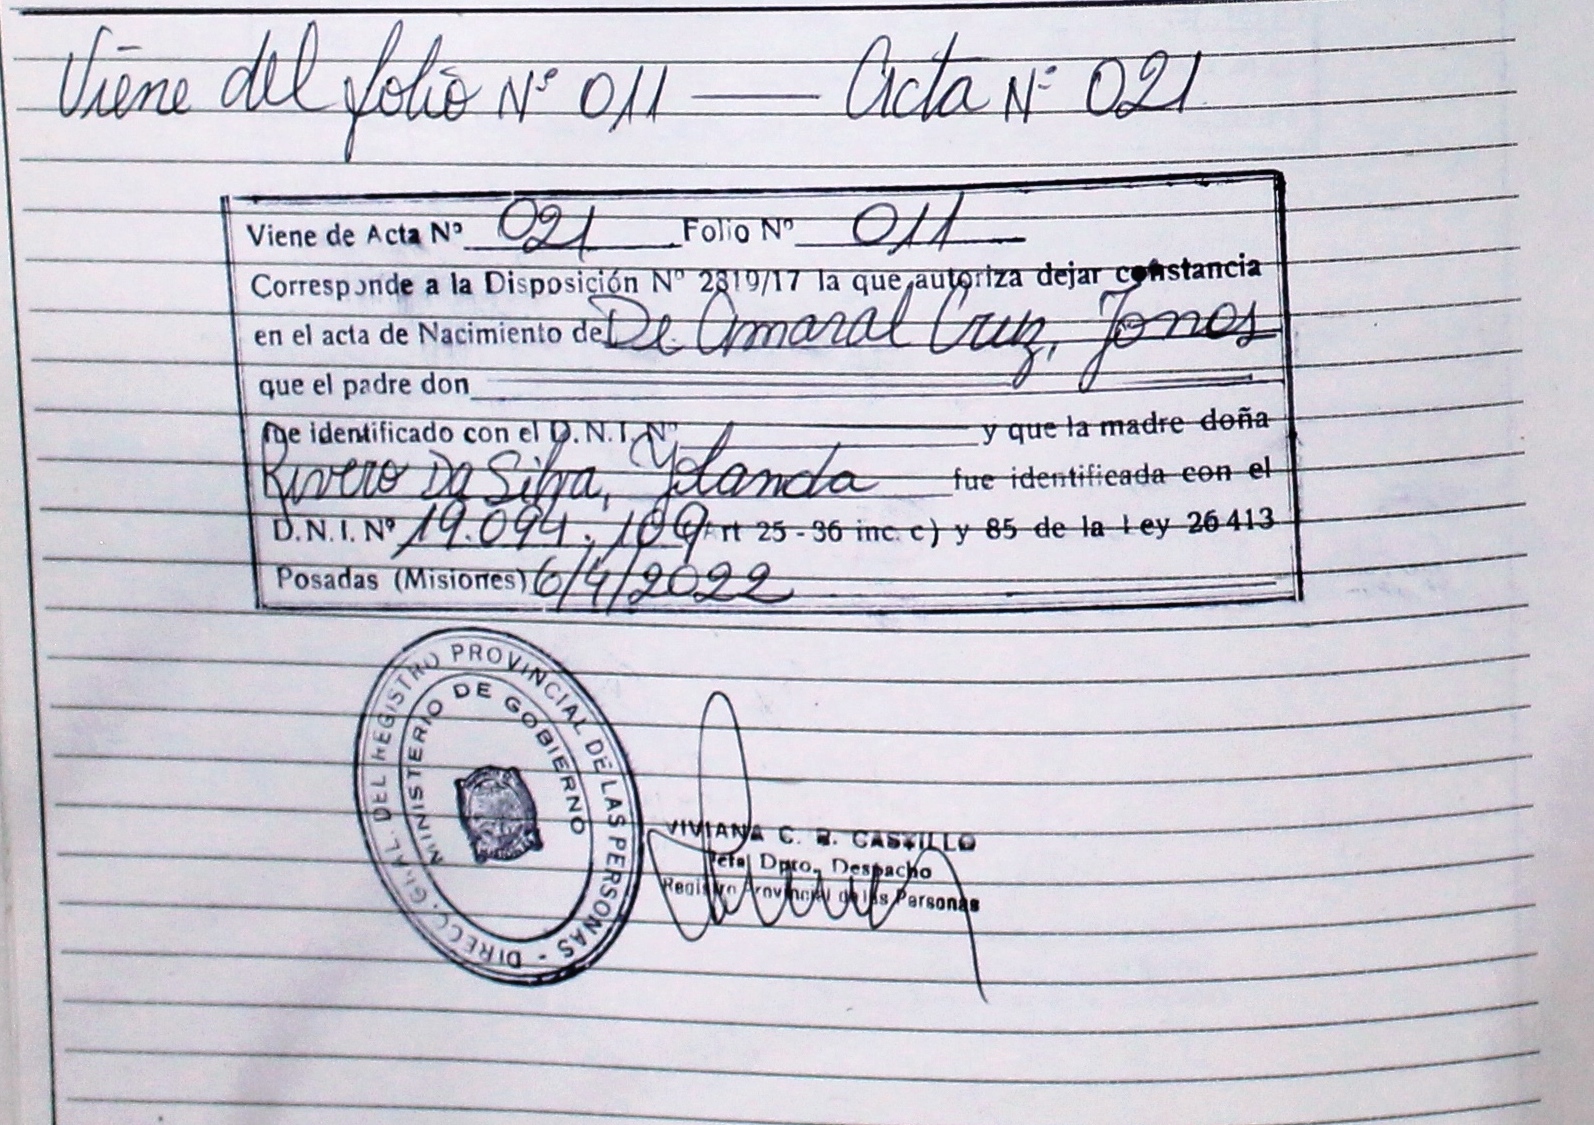 Viene del folio Nº 011 —— Acta Nº 021
Viene de Acta Nº 021 Folio Nº 011
Corresponde a la Disposición Nº 2819/17 la que autoriza dejar constancia
en el acta de Nacimiento de De Amaral Cruz, Jonos
que el padre don
fue identificado con el D.N.I. Nº y que la madre doña
Rivero Da Silva, Yolanda fue identificada con el
D.N.I. Nº 19.094.109 Art 25 - 36 inc. c) y 85 de la Ley 26413
Posadas (Misiones) 6/4/2022
DIRECC. GRAL. DEL REGISTRO PROVINCIAL DE LAS PERSONAS -
MINISTERIO DE GOBIERNO
VIVIANA C. B. CASTILLO
Jefa Dpto. Despacho
Registro Provincial de las Personas